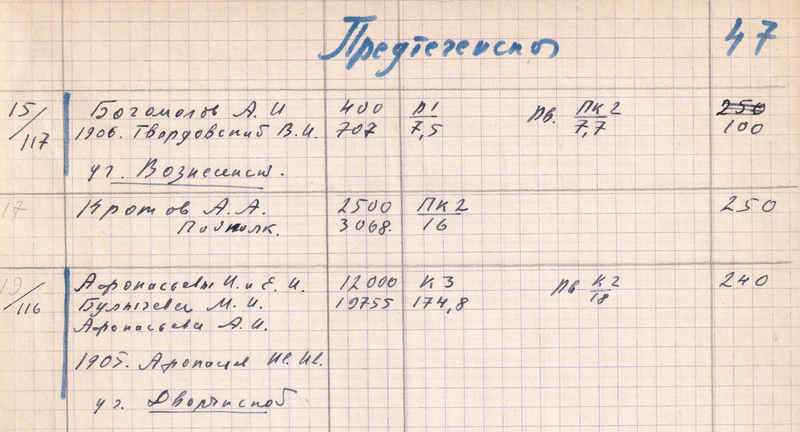 Предтеченской 47
15/117 Богомолов А. И 400 Д1/7,5 дв. ПК2/7,7 250
1906. Твардовский В. И. 707 100
уг. Вознесенск.
17 Кротов А. А. 2500 ПК2/16 250
Подполк. 3068.
19/116 Афонасьевы И. и Е. И. 12000 К3 дв К2/18 240
Булычева М. И. 19755 174,8
Афонасьева А. И.
1905. Афонасьев
уг. Дворянской